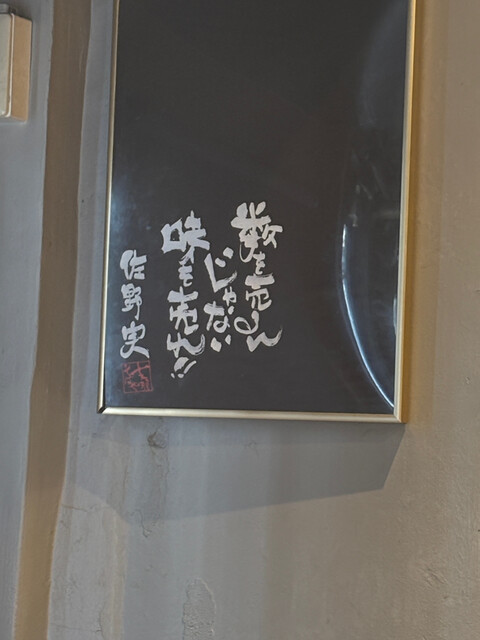 数を売るん
じゃない
味を売れ!!
佐野史